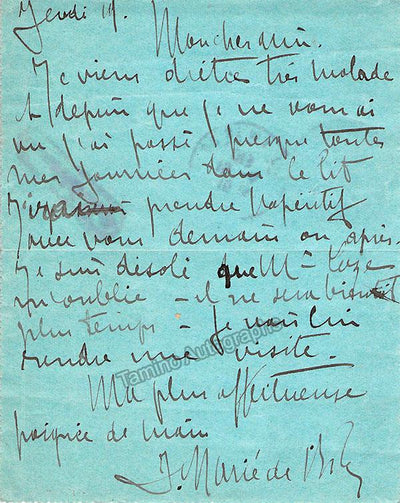 Jeudi 19.
Mon cher ami.
Je viens d'être très malade
et depuis que je ne vous ai
vu j'ai passé presque toutes
mes journées dans le lit
J'irai prendre l'apéritif
avec vous demain ou après.
Je suis désolé que Mr
m'oublie - il ne sera bientôt
plus temps - Je vais lui
rendre une visite.
Ma plus affectueuse
poignée de main
J. Marié de l'Isle
Tamino Autographs